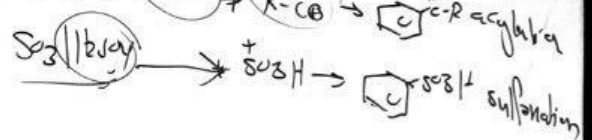 R-C⊕ → C-R acylation
SO3 | H2SO4 → +SO3H → SO3H sulfonation